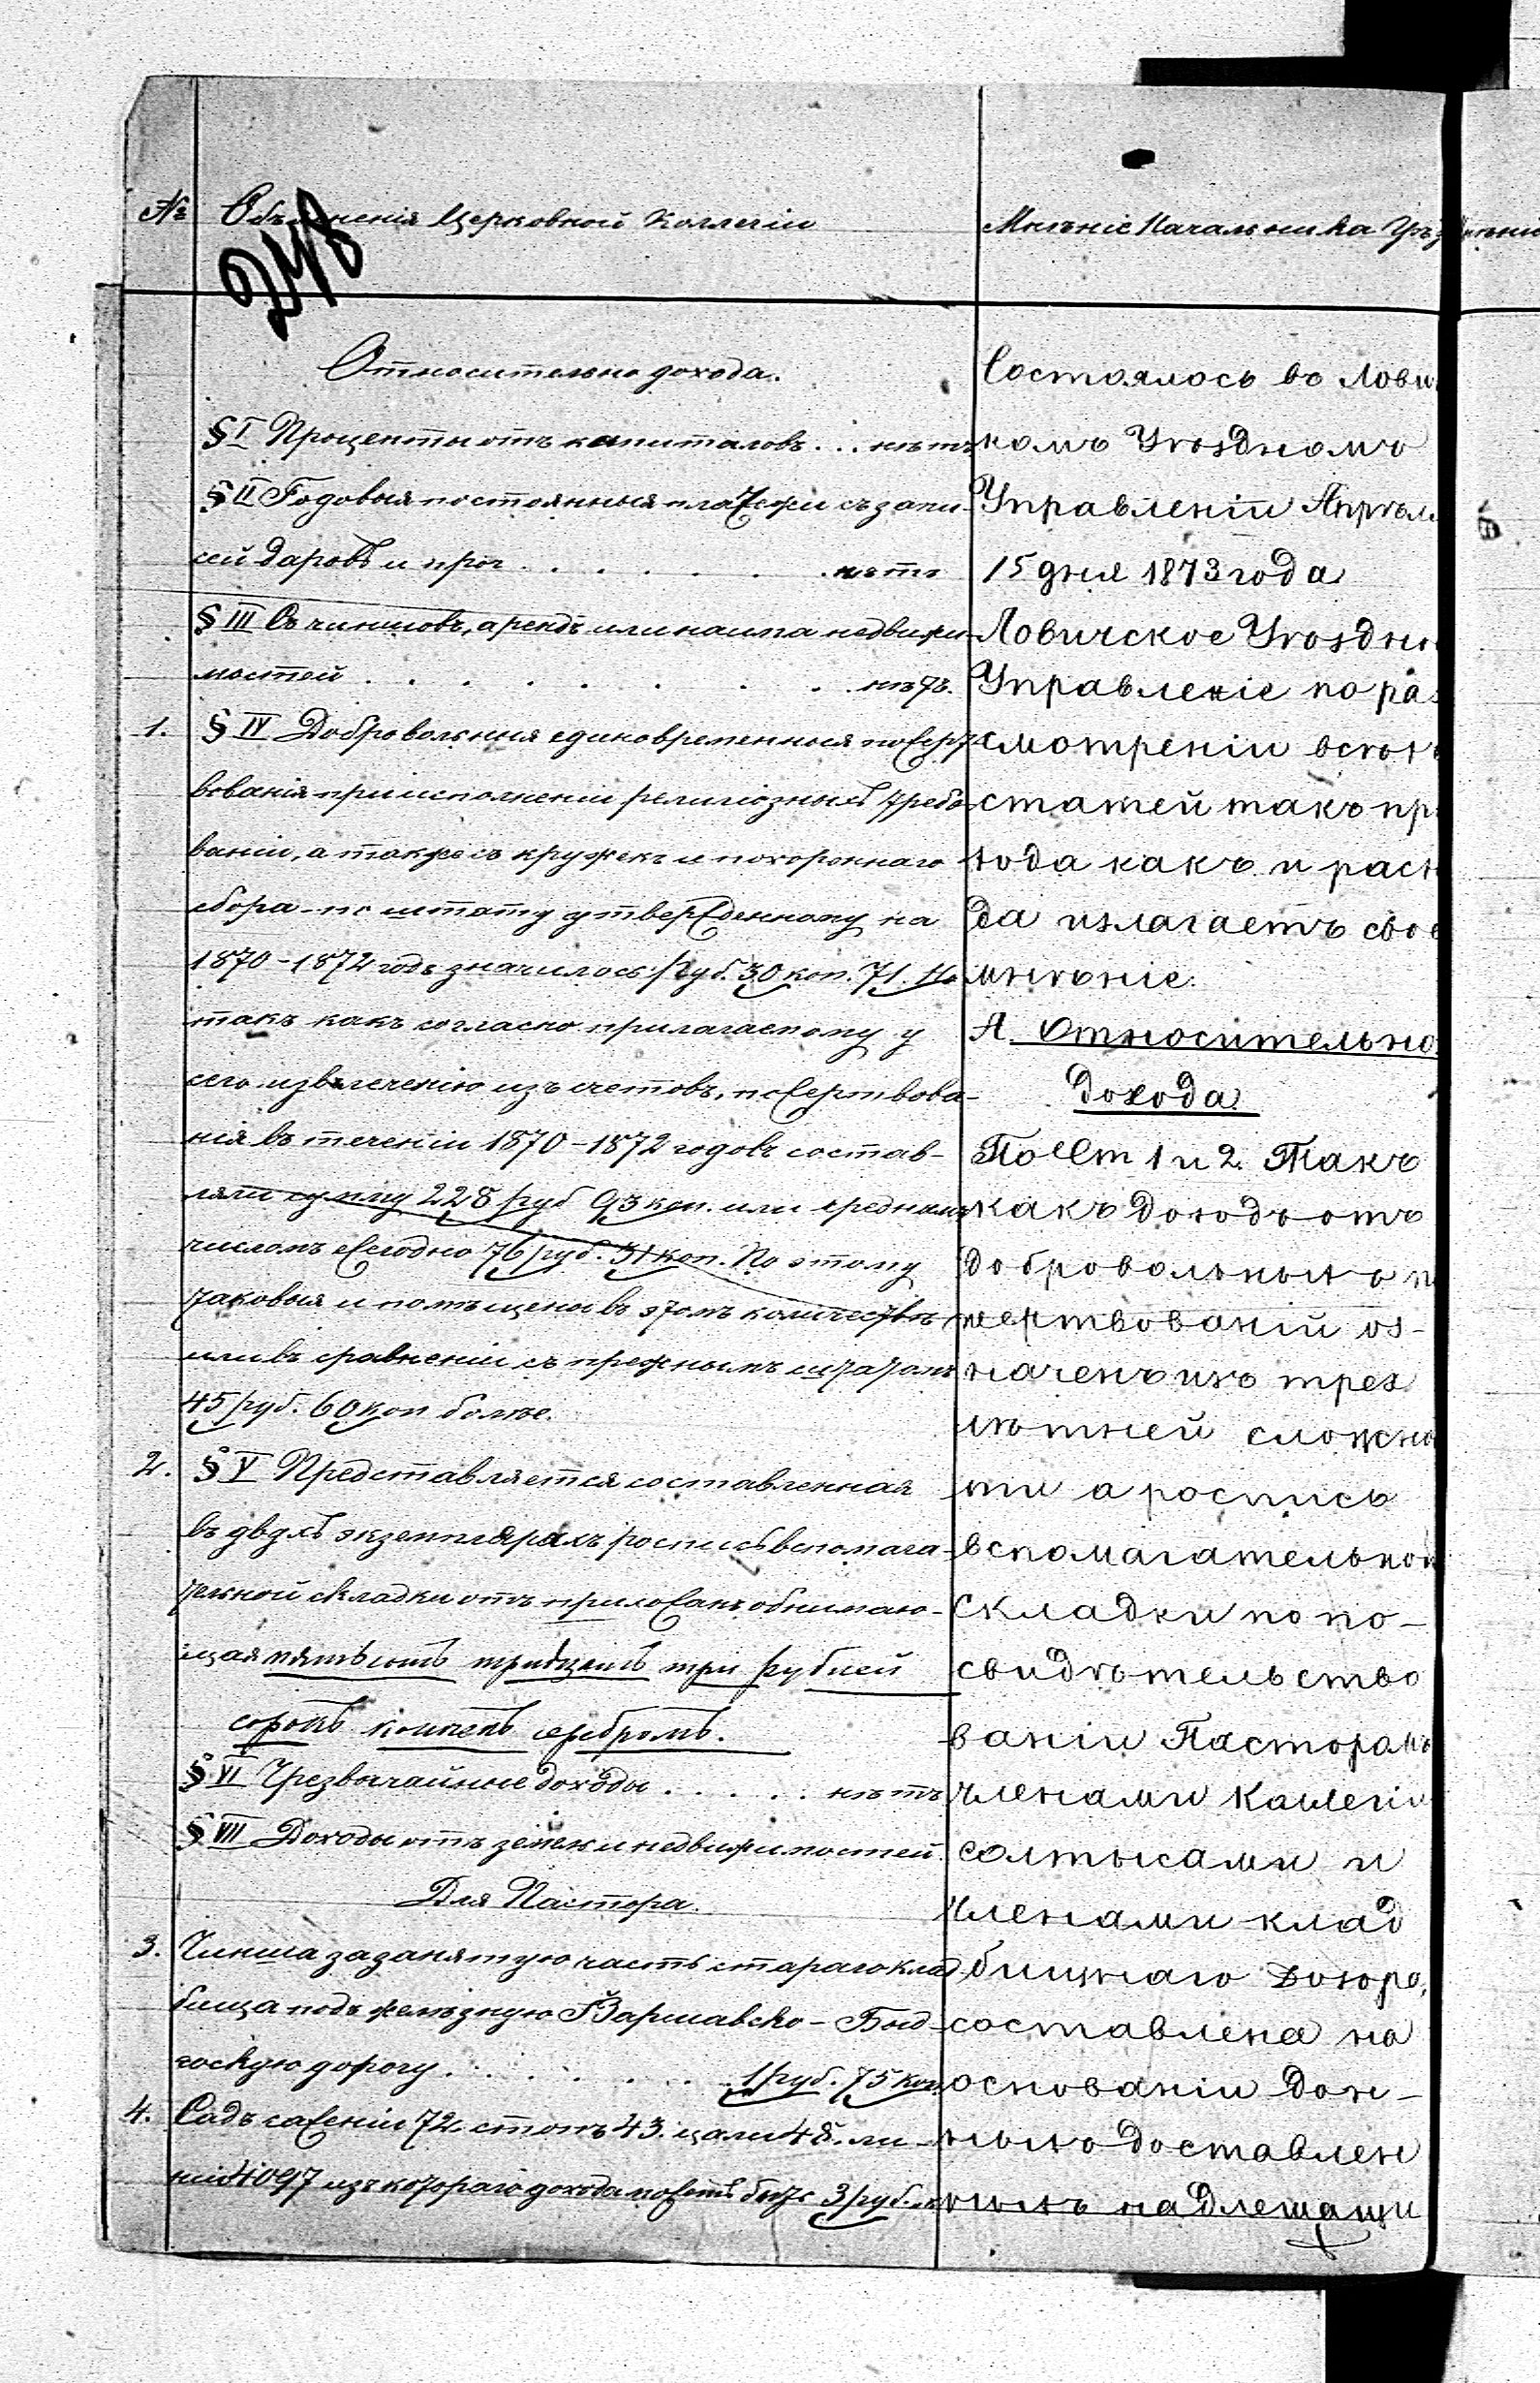 №
Объясненія Церковной Коллегіи
Мнѣніе Начальника Уѣзд
248
Относительно дохода.
§ I Проценты отъ капиталовъ . . . нѣтъ
§ II Годовыя постоянныя платежи съ запи-
сей даровъ и проч . . . . . . . нѣтъ
§ III Съ чиншовъ, арендъ или найма недвижи-
мостей . . . . . . . . . нѣтъ.
1. § IV Добровольныя единовременныя пожерт-
вованія при исполненіи религіозныхъ требо-
ваніи, а также съ кружекъ и похороннаго
сбора - по штату утвержденному на
1870-1872 годъ значилось: Руб. 30 коп. 71. Но
такъ какъ согласно прилагаемому у
сего извлеченію изъ счетовъ, пожертвова-
нія въ теченіи 1870-1872 годовъ состав-
ляли сумму 228 руб 93 коп. или среднимъ
числомъ ежегодно 76 руб. 31 коп. По этому
таковыя и помѣщены въ этомъ количествѣ
или въ сравненіи съ прежнымъ штатомъ
45 руб. 60 коп болѣе.
2. § V Представляется составленная
въ двухъ экземплярахъ роспись вспомага-
тельной складки отъ прихожанъ обнимаю-
щая пятьсотъ тридцать три рублей
сорокъ копѣекъ серебромъ.
§ VI Чрезвычайные доходы . . . . . нѣтъ
§ VII Доходы отъ земель и недвижимостей.
Для Пастора.
3. Чинша за занятую часть стараго клад-
бища подъ желѣзную Варшавско - Быд-
госкую дорогу . . . . . . . . 1 руб. 75 коп.
4. Садъ саженіи 72. стопъ 43. цали 48. ли-
ніи 4097 изъ котораго дохода можетъ быть 3 руб.
Состоялось въ Лови
комъ Уѣздномъ
Управленіи Апрѣля
15 дня 1873 года
Ловичское Уѣздно
Управленіе по раз
смотреніи всѣхъ
статей такъ при
хода какъ и расхо
да излагаетъ свое
мнѣніе.
А. Относительно
дохода
По Ст 1 и 2. Такъ
какъ доходъ отъ
добровольныхъ по
жертвованій оз-
наченъ изъ трех
лѣтней сложно
ти а роспись
вспомагательной
складки по по-
свидѣтельство
ваніи Пасторамъ
членами Каллегіи
солтысами и
членами клад
бищнаго Дозора,
составлена на
основаніи дан-
ныхъ доставлен
ныхъ надлежащи